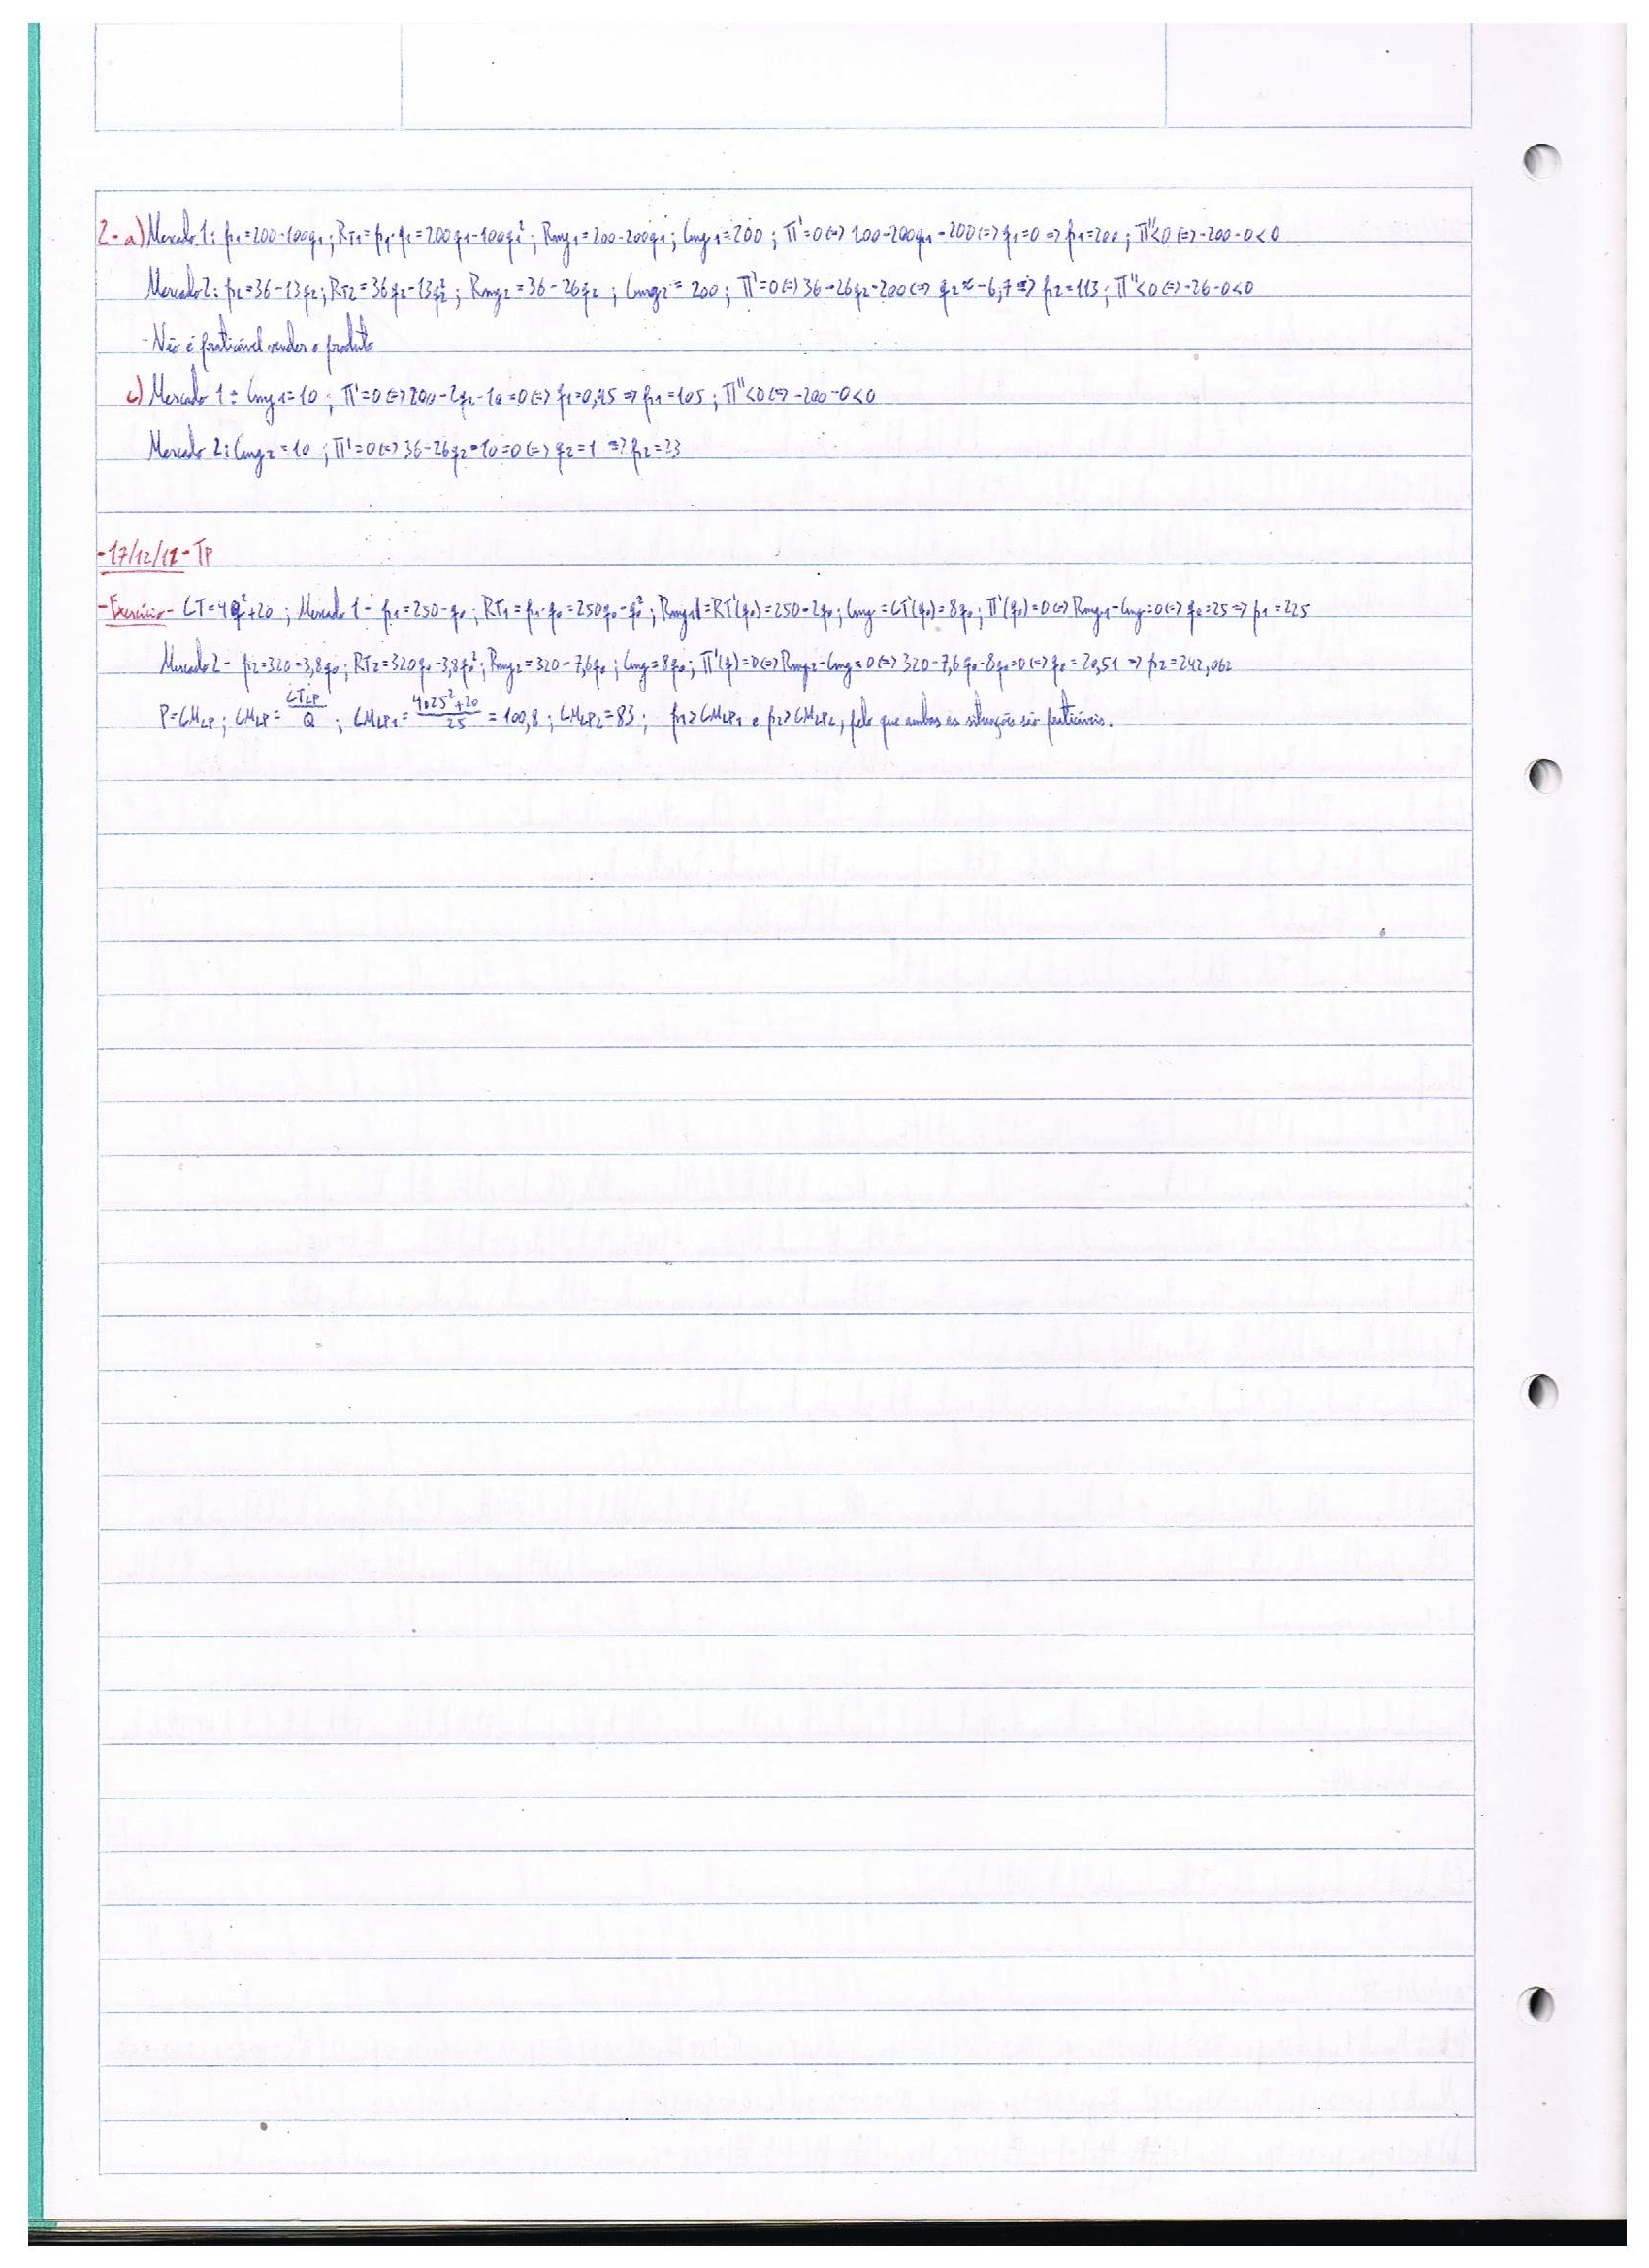 2-a) Mercado 1: p1=200-100q1; RT1=p1·q1=200q1-100q1²; Rmg1=200-200q1; Cmg1=200; Π'=0<=>200-200q1-200<=>q1=0=>p1=200; Π''<0<=>-200-0<0
Mercado 2: p2=36-13q2; RT2=36q2-13q2²; Rmg2=36-26q2; Cmg2=200; Π'=0<=>36-26q2-200<=>q2≈-6,7=>p2=113; Π''<0<=>-26-0<0
-Não é praticável vender o produto
c) Mercado 1: Cmg1=10; Π'=0<=>200-2q2-10=0<=>q1=0,95=>p1=105; Π''<0<=>-200-0<0
Mercado 2: Cmg2=10; Π'=0<=>36-26q2-10=0<=>q2=1=>p2=23
-17/12/12-TP
-Exercício- CT=4Q²+20; Mercado 1- p1=250-q0; RT1=p1·q0=250q0-q0²; Rmg1=RT'(q0)=250-2q0; Cmg=CT'(q0)=8q0; Π'(q0)=0<=>Rmg1-Cmg=0<=>q0=25=>p1=225
Mercado 2- p2=320-3,8q0; RT2=320q0-3,8q0²; Rmg2=320-7,6q0; Cmg=8q0; Π'(q)=0<=>Rmg2-Cmg=0<=>320-7,6q0-8q0=0<=>q0=20,51=>p2=242,062
P=CMLP; CMLP=CTLP/Q; CMLP1=(4×25²+20)/25=100,8; CMLP2=83; p1>CMLP1 e p2>CMLP2, pelo que ambas as situações são praticáveis.